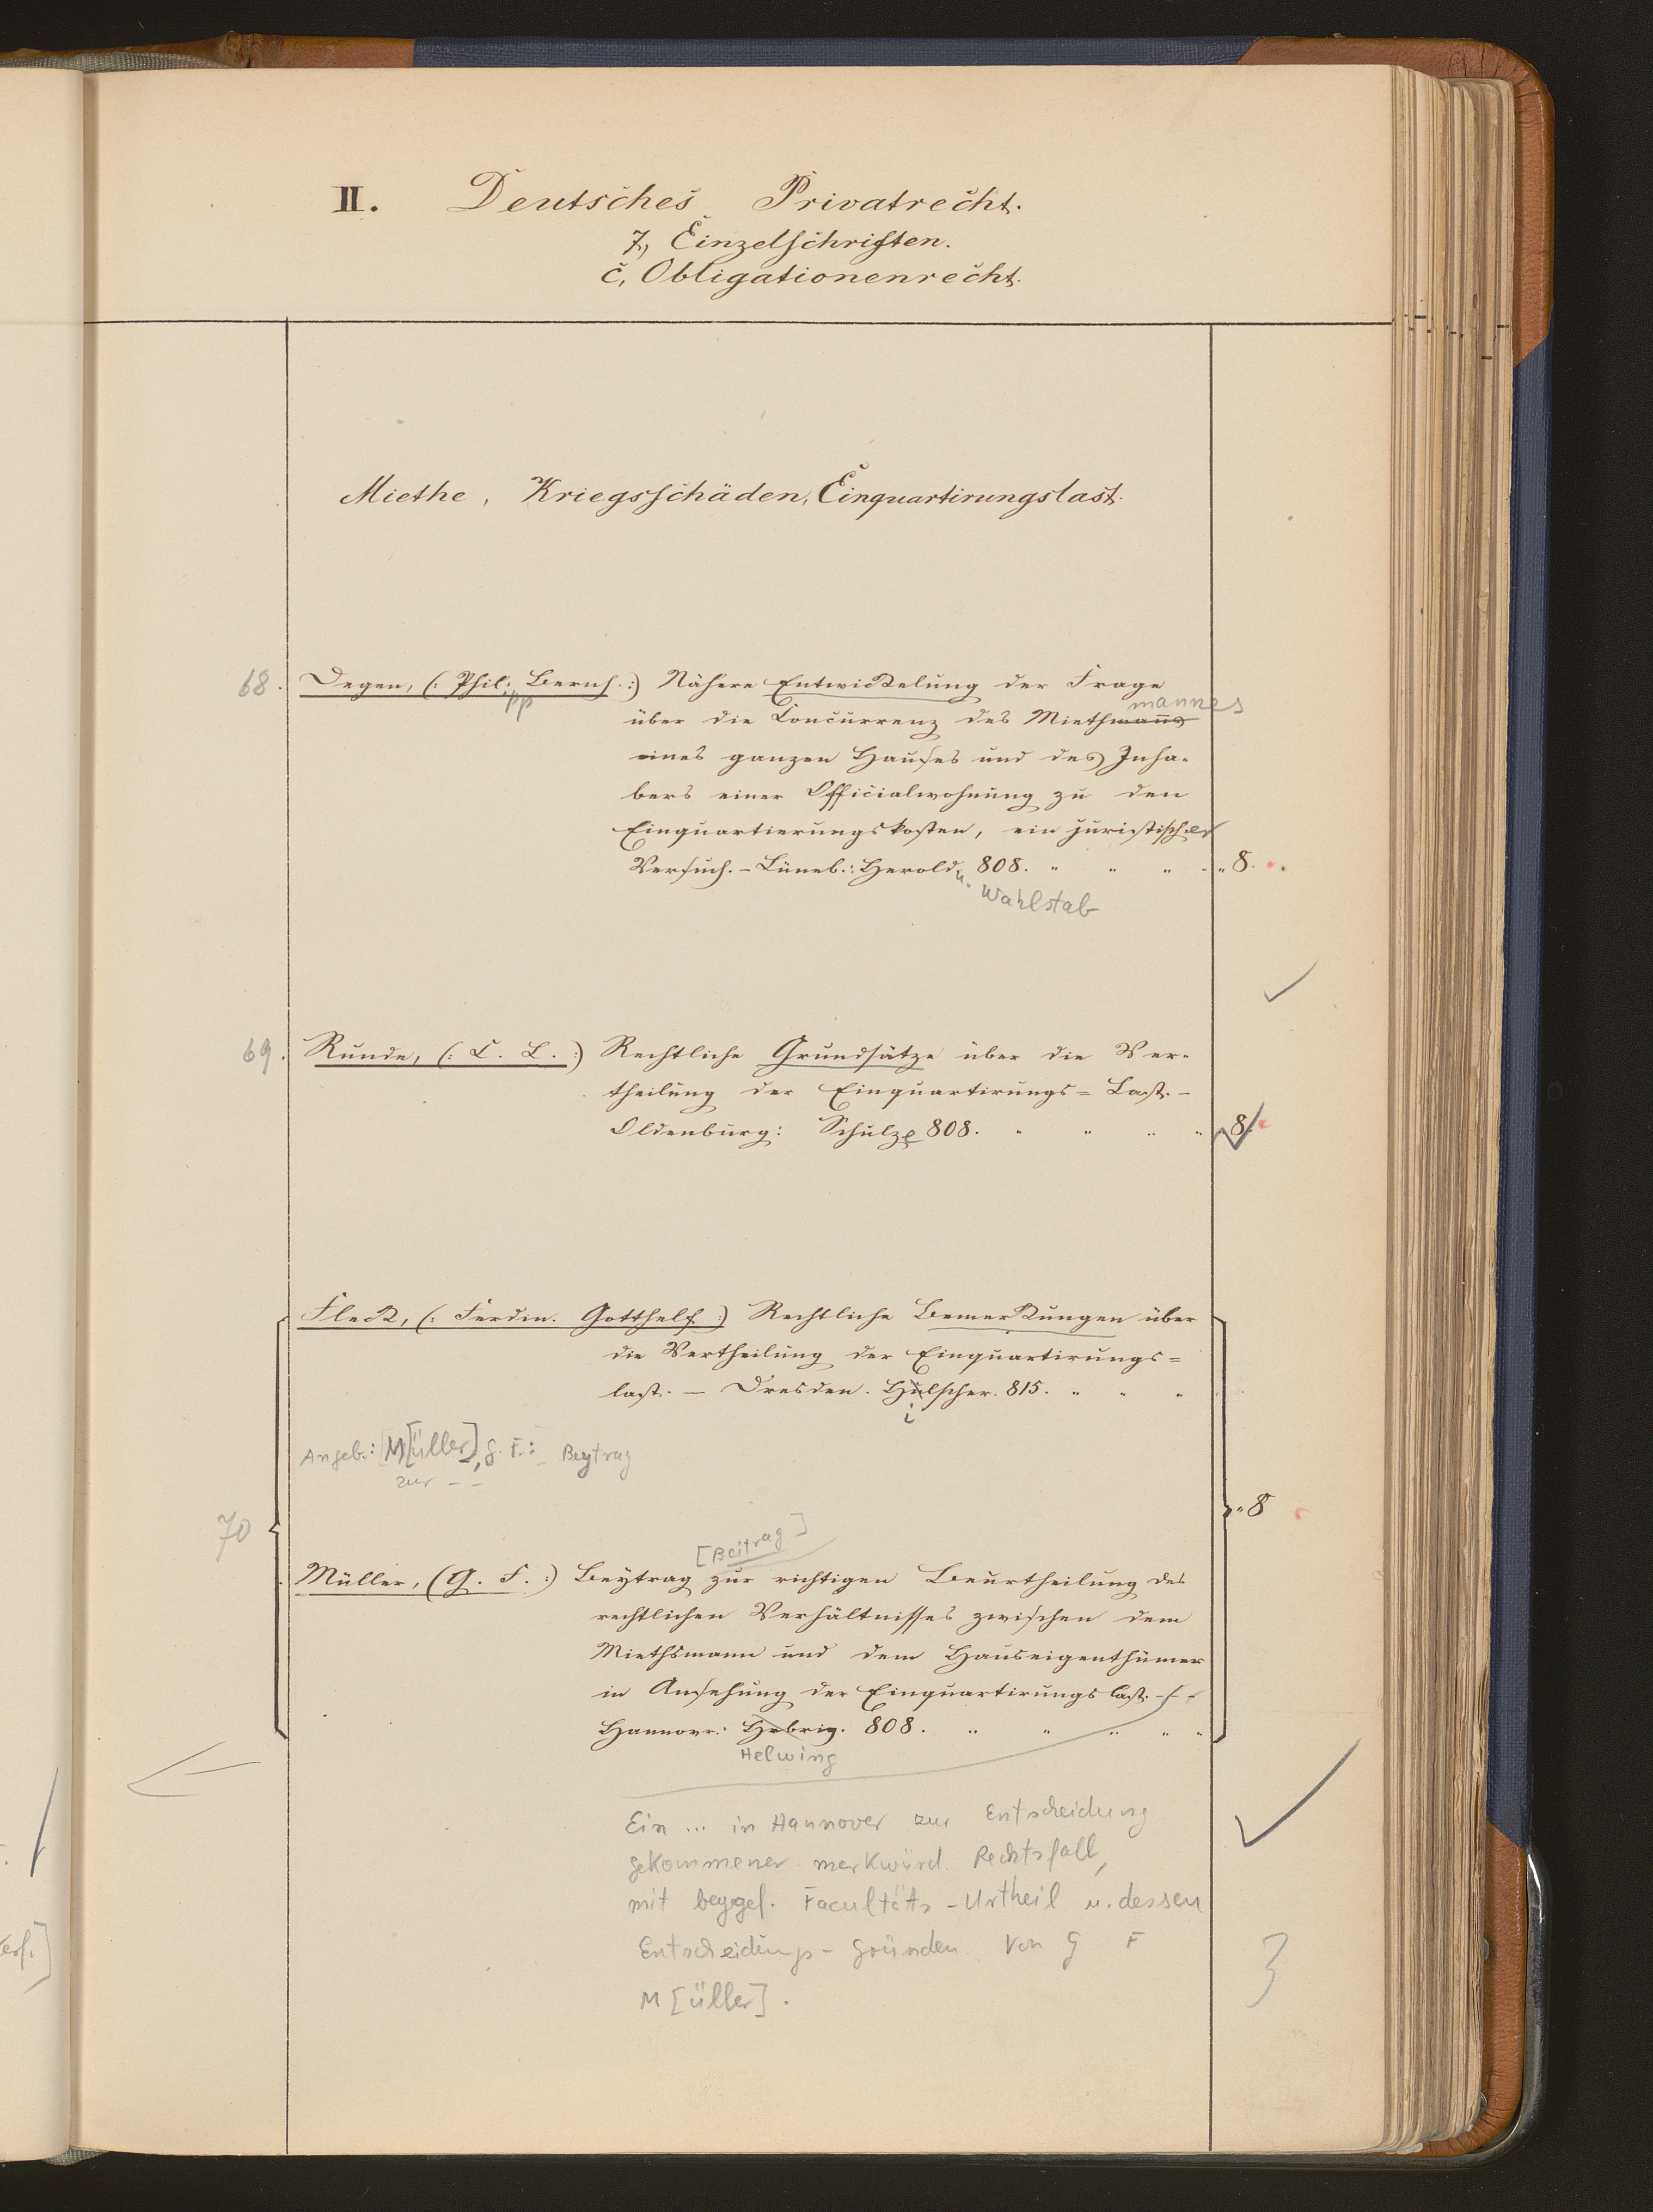 II. Deutsches Privatrecht.
7, Einzelschriften.
c, Obligationenrecht.
Miethe, Kriegsschäden, Einquartirungslast.
68. Degen, (: Phil: Bernh. :) Nähere Entwickelung der Frage
pp
mannes
über die Concurrenz des Miethmanns
eines ganzen Hauses und des Inha-
bers einer Officialwohnung zu den
Einquartierungskosten, ein juristischer
Versuch. - Lüneb.: Herold u. 808. " " " " 8.
Wahlstab
69. Runde, (: C. L. :) Rechtliche Grundsätze über die Ver-
theilung der Einquartirungs= Last. -
Oldenburg: Schulze 808. " " " " 8.
Fleck, (: Ferdin. Gotthelf :) Rechtliche Bemerkungen über
die Vertheilung der Einquartirungs=
last. - Dresden. Hülscher. 815. " " "
i
Angeb.: M[üller], G. F.: Beytrag
zur - -
70 " 8
[Beitrag]
Müller, (G. F. :) Beytrag zur richtigen Beurtheilung des
rechtlichen Verhältnisses zwischen dem
Miethsmann und dem Hauseigenthümer
in Ansehung der Einquartirungslast. -
Hannovr.: Hebrig. 808. " " " " "
Helwing
Ein ... in Hannover zur Entscheidung
gekommener merkwürd. Rechtsfall,
mit beygef. Facultäts-Urtheil u. dessen
Entscheidungs-Gründen. Von G F
M[üller].
3